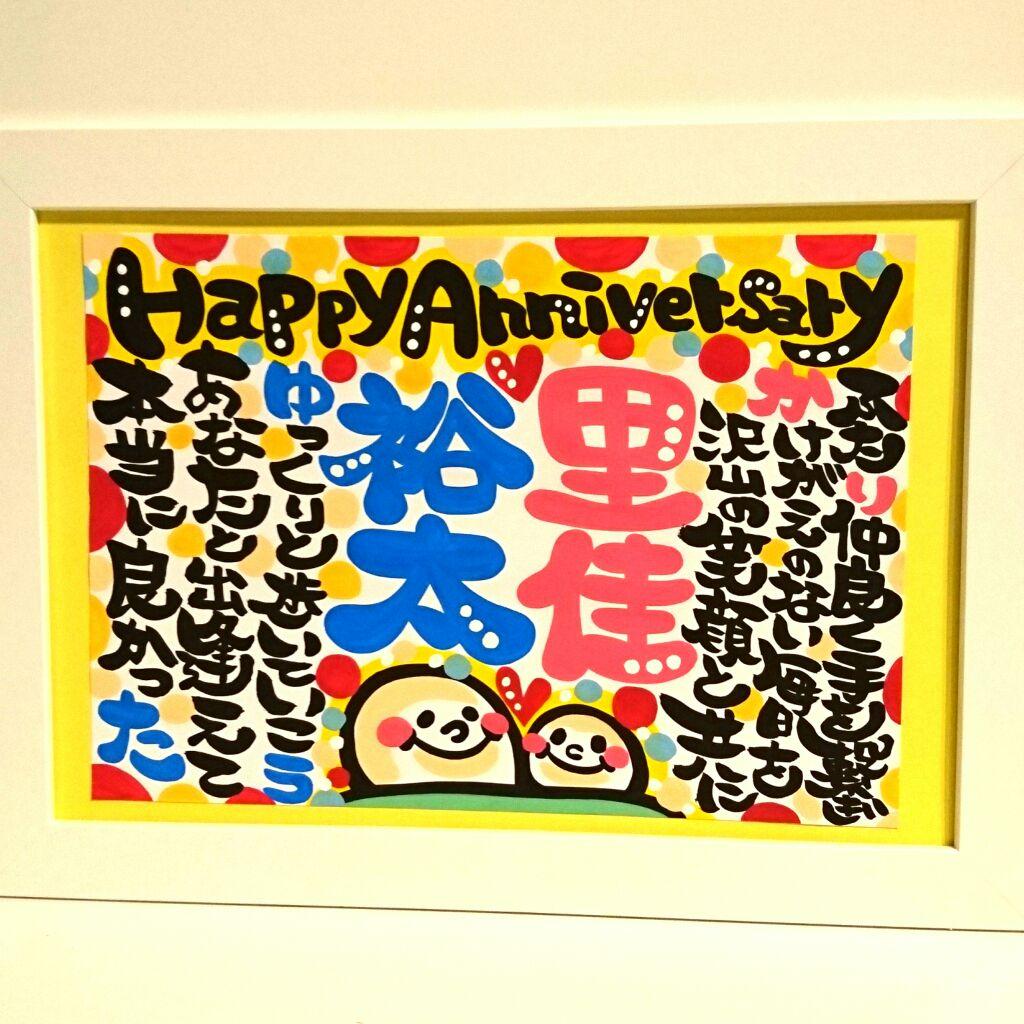 Happy Anniversary
ふたり仲良く手を繋ぎ
かけがえのない毎日を
沢山の笑顔と共に
里佳
裕太
ゆっくりと歩いていこう
あなたと出逢えて
本当に良かった